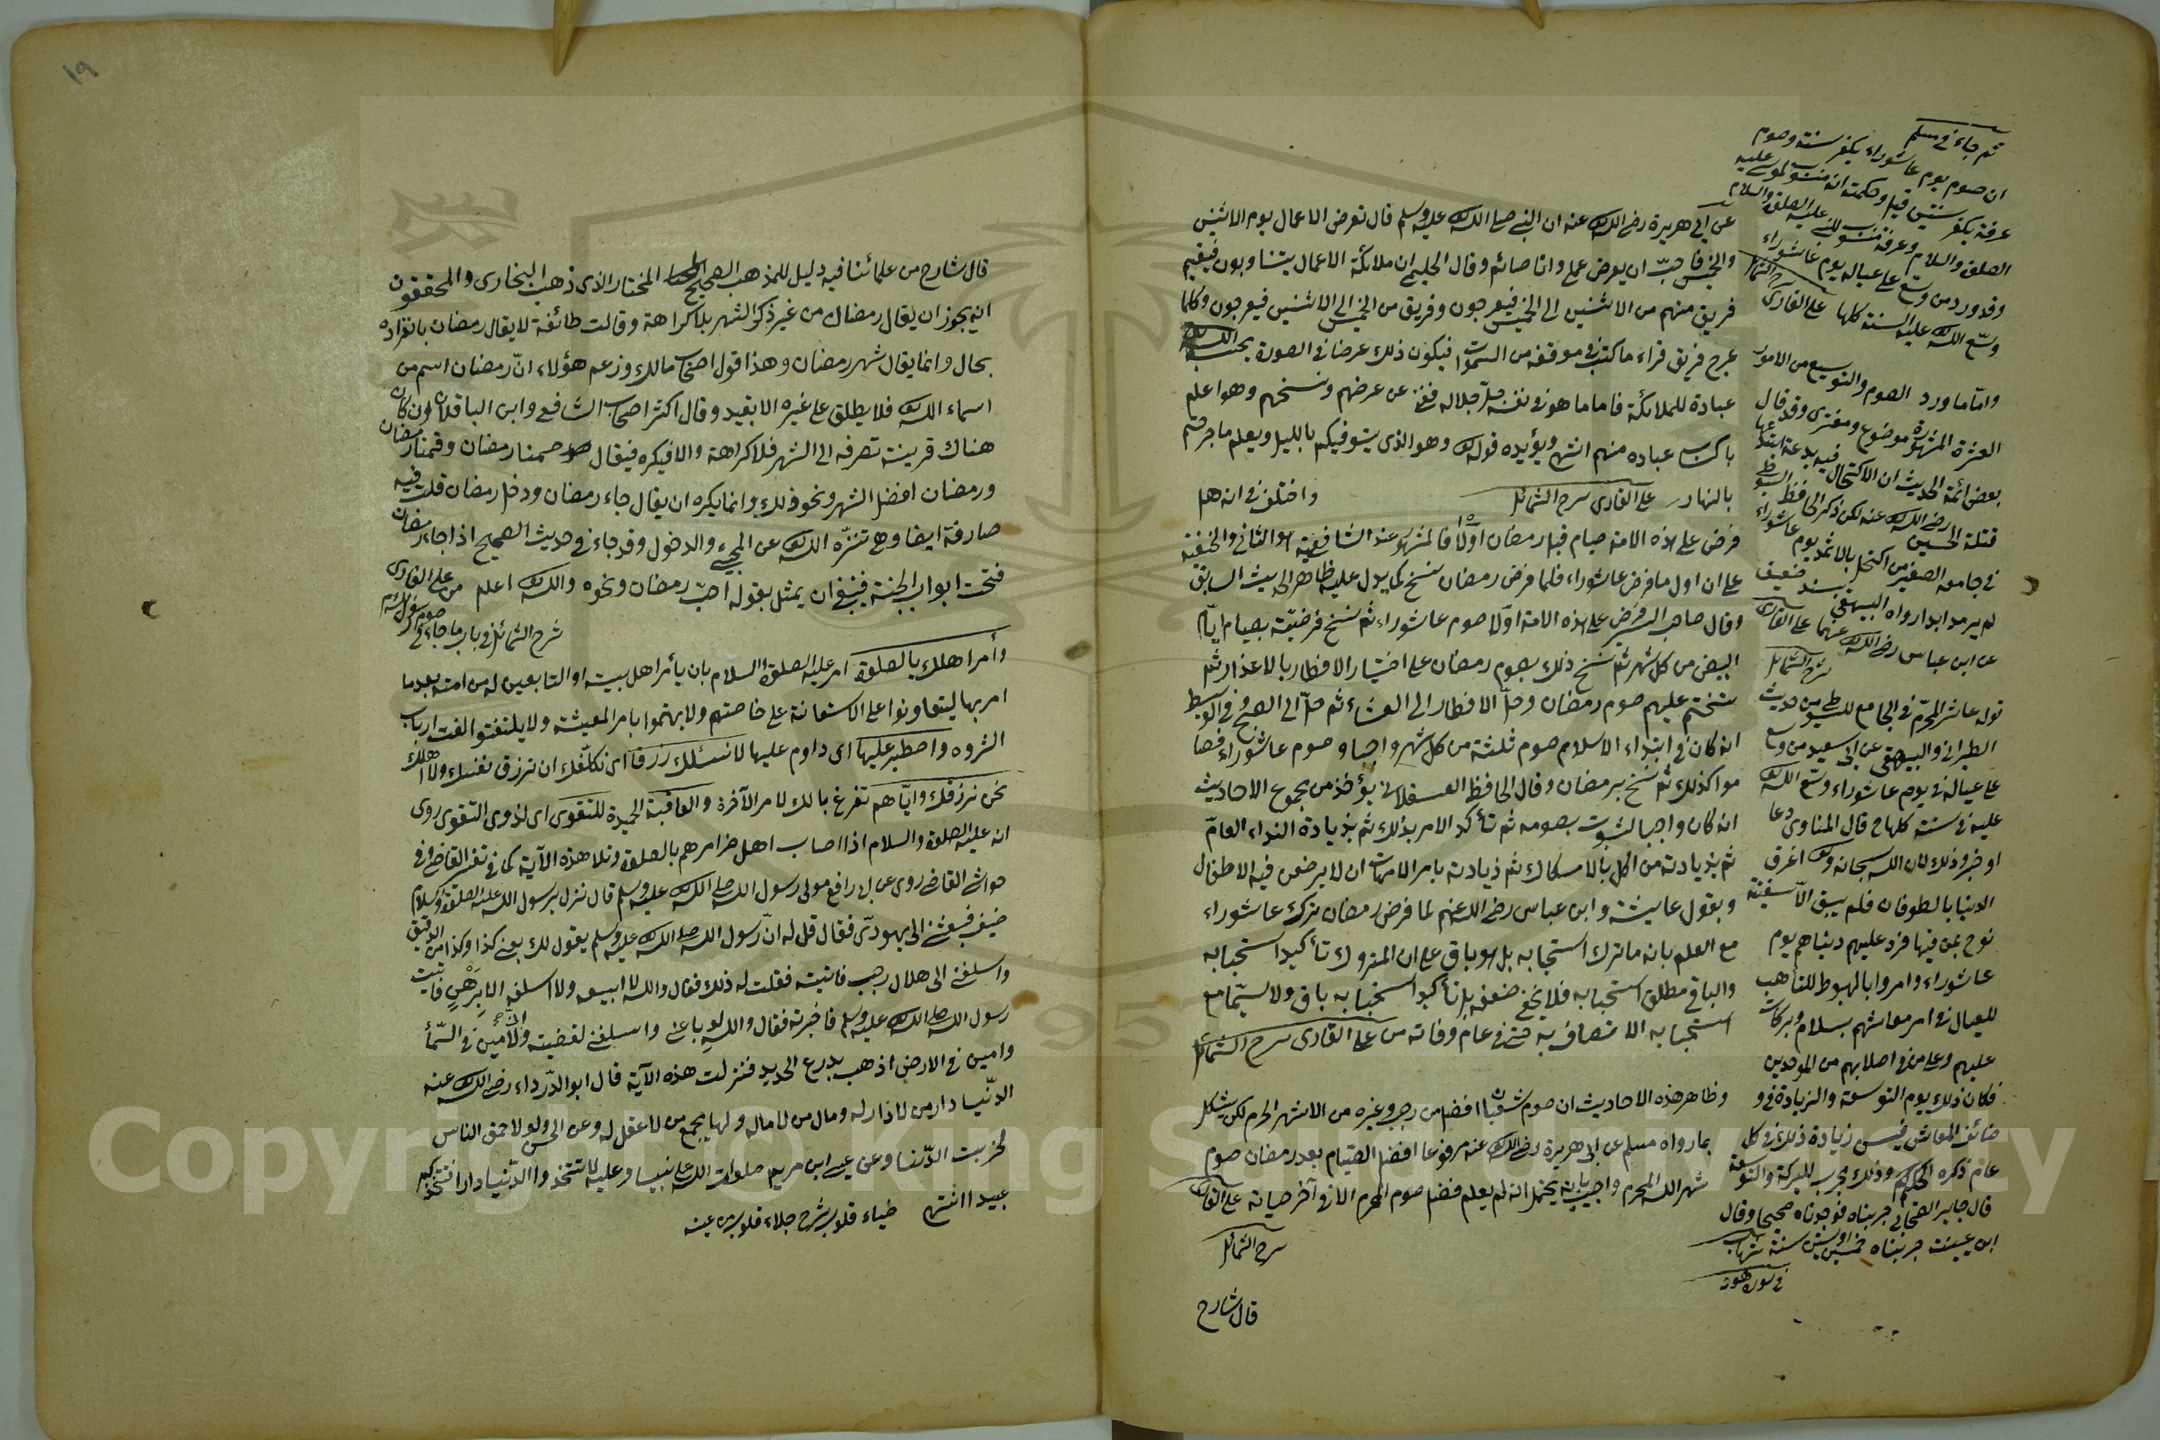 عن ابى هريرة رضى الله عنه ان النبى صلى الله عليه وسلم قال تعرض الاعمال يوم الاثنين
والخميس فاحبّ ان يعرض عملى وانا صائم وقال الحليمى ان ملائكة الاعمال يتناوبون فيقيم
فريق منهم من الاثنين الى الخميس فيعرجون وفريق من الخميس الى الاثنين فيعرجون وكلما
عرج فريق قراء ما كتب فى موقفه من السموات فيكون ذلك عرضا فى الصورة يحسبه الله
عبادة للملائكة فاما ما هو فى نفسه جلّ جلاله فغنى عن عرضهم ونسخهم وهو اعلم
باكتساب عباده منهم انتهى ويؤيده قوله وهو الذى يتوفيكم بالليل ويعلم ما جرحتم
بالنهار على القارى شرح الشمائل واختلف فى انه هل
فرض على هذه الامة صيام قبل رمضان اولا فالمشهور عند الشافعية هو الثانى والحنفية
على ان اول ما فرض عاشوراء فلما فرض رمضان نسخ كما يدل عليه ظاهر الحديث السابق
وقال صاحب السير فرض على هذه الامة اولا صوم عاشوراء ثم نسخ فرضيته بصيام ايام
البيض من كل شهر ثم نسخ ذلك بصوم رمضان على اختيار الافطار بالاعذار ثم
تحتم عليهم صوم رمضان وحلّ الافطار الى العشاء ثم حلّ الى الصبح وفى الوسيط
انه كان فى ابتداء الاسلام صوم ثلثة من كل شهر واجبا وصوم عاشوراء فصا
موا كذلك ثم نسخ برمضان وقال الحافظ العسقلانى يؤخذ من مجموع الاحاديث
انه كان واجبا لثبوت بصومه ثم تأكد الامر بذلك ثم بزيادة النداء العامّ
ثم بزيادته من اكل بالامساك ثم زيادته بامر الامهات ان لا يرضعن فيه الاطفال
وبقول عايشة وابن عباس رضى الله عنهم لما فرض رمضان ترك عاشوراء
مع العلم بانه ما ترك استحبابه بل هو باق على ان المتروك تأكيد استحبابه
والباقى مطلق استحبابه فلا يخفى ضعفه بل تأكيد استحبابه باق ولا سيّما مع
استحبابه الاتصاف به حتى فى عام وفاته من على القارى شرح الشمائل
وظاهر هذه الاحاديث ان صوم شعبان افضل من رجب وغيره من الاشهر الحرم لكن يشكل
بما رواه مسلم عن ابى هريرة رضى الله عنه مرفوعا افضل الصيام بعد رمضان صوم
شهر الله المحرم واجيب بانه يحتمل انه لم يعلم فضل صوم المحرم الا فى آخر حياته على القارى
شرح الشمائل
قال شارح
ثم جاء فى مسلم
ان صوم يوم عاشوراء يكفر سنة وصوم
عرفة يكفر سنتين قيل وحكمته انه منسوب لموسى عليه
الصلوة والسلام وعرفة منسوب للنبى عليه الصلوة والسلام
وقد ورد من وسّع على عياله يوم عاشوراء
وسّع الله عليه السنة كلها على القارى شرح الشمائل
وامّا ما ورد الصوم والتوسيع من الامور
العشرة المشهورة موضوع ومفترى وقد قال
بعض ائمة الحديث ان الاكتحال فيه بدعة ابتدعها
قتلة الحسين رضى الله عنه لكن ذكر الحافظ السيوطى
فى جامعه الصغير من اكتحل بالاثمد يوم عاشوراء
لم يرمد ابدا رواه البيهقى بسند ضعيف
عن ابن عباس رضى الله عنهما على القارى
شرح الشمائل
قوله عاشر المحرّم فى الجامع للسيوطى من حديث
الطبرانى والبيهقى عن ابى سعيد من وسع
على عياله فى يوم عاشوراء وسّع الله
عليه فى سنته كلها قال المناوى دعا
او خبر وذلك لان الله سبحانه وتعالى اغرق
الدنيا بالطوفان فلم يبق الا سفينة
نوح بمن فيها فرد عليهم دنياهم يوم
عاشوراء وامروا بالهبوط للتأهب
للعيال فى امر معاشهم بسلام وبركات
عليهم وعلى من فى اصلابهم من الموحدين
فكان ذلك يوم التوسعة والزيادة فى و
ظائف المعاش فيسن زيادة ذلك فى كل
عام ذكره الحكيم وذلك مجرب للبركة والتوسعة
قال جابر الصحابى جربناه فوجدناه صحيحا وقال
ابن عيينة جربناه خمسين او ستين سنة شهاب
فى سورة هود
١٩
قال شارح من علمائنا فيه دليل للمذهب الصحيح المختار الذى ذهب البخارى والمحققون
انه يجوز ان يقال رمضان من غير ذكر الشهر بلا كراهة وقالت طائفة لا يقال رمضان بانفراده
بحال وانما يقال شهر رمضان وهذا قول اصحاب مالك وزعم هؤلاء انّ رمضان اسم من
اسماء الله فلا يطلق على غيره الا بقيد وقال اكثر اصحاب الشافعى وابن الباقلانى ان كان
هناك قرينة تصرفه الى الشهر فلا كراهة والا فيكره فيقال صمنا رمضان وقمنا رمضان
ورمضان افضل الشهر ونحو ذلك وانما يكره ان يقال جاء رمضان ودخل رمضان قلت فيه
صارفة ايضا وهى تنزّه الله عن المجىء والدخول وقد جاء فى حديث الصحيح اذا جاء رمضان
فتحت ابواب الجنة فينبغى ان يمثل بقوله احبّ رمضان ونحوه والله اعلم من على القارى
شرح الشمائل فى باب ما جاء فى صوم رسول الله
وأمر اهلك بالصلوة امر عليه الصلوة والسلام بان يأمر اهل بيته او التابعين له من امته بعد ما
امر بها ليتعاونوا على الاستعانة على خاصتهم ولا يهتموا بامر المعيشة ولا يلتفتوا لفت ارباب
الثروه واصطبر عليها اى داوم عليها لا نسئلك رزقا اى نكلّفك ان ترزق نفسك ولا اهلك
نحن نرزقك وايّاهم تفرغ بالك لامر الآخرة والعاقبة الحميدة للتقوى اى لذوى التقوى روى
انه عليه الصلوة والسلام اذا اصاب اهل ضر امرهم بالصلوة وتلا هذه الآية كما فى تفسير القاضى وفى
حواشى القاضى روى عن ابى رافع مولى رسول الله صلى الله عليه وسلم قال نزل برسول الله عليه الصلوة والسلام
ضيف فبعثنى الى يهودىّ فقال قل له انّ رسول الله صلى الله عليه وسلم يقول لك بعنى كذا وكذا من الدقيق
واسلفنى الى هلال رجب فاتيته فقلت له ذلك فقال والله لا ابيعه ولا اسلفه الا برَهْنٍ فاتيت
رسول الله صلى الله عليه وسلم فاخبرته فقال واللهِ لو باعنى واسلفنى لقضيته وانى لأمين فى السّماء
وامين فى الارض اذهب بدرع الحديد فنزلت هذه الآية قال ابو الدّرداء رضى الله عنه
الدّنيا دار من لا دار له ومال من لا مال له ولها يجمع من لا عقل له وعن الحسن لو لا حمق الناس
لخربت الدّنيا وعن عيسى ابن مريم صلوات الله على نبينا وعليه لا تتخذوا الدّنيا دارا فتتخذكم
عبيدا انتهى ضياء قلوب شرح جلاء قلوب من عينه
Copyright © King Saud University